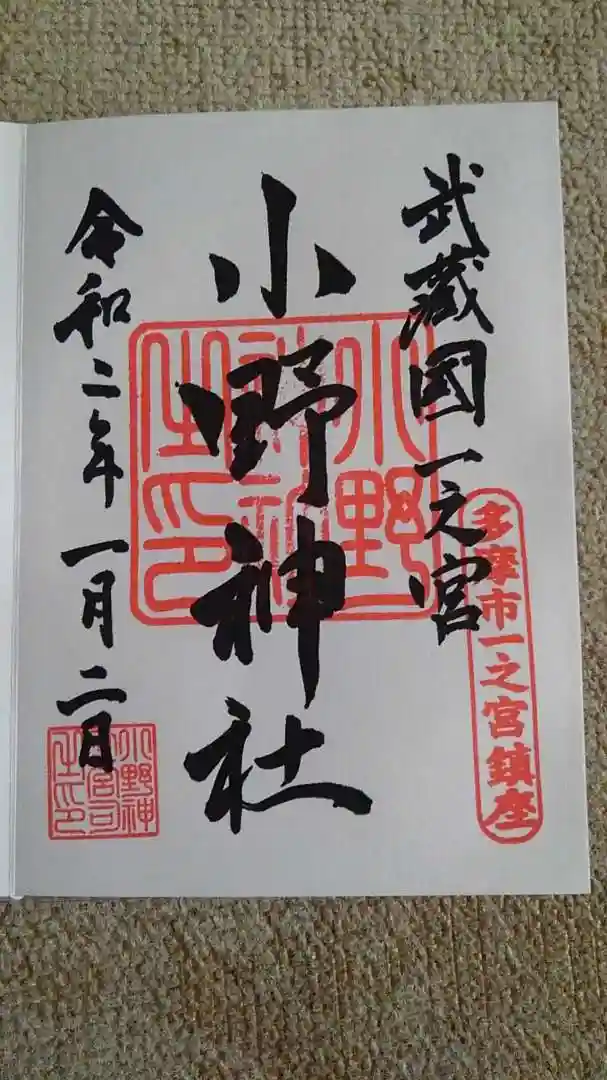 武蔵國一之宮
多摩市一之宮鎮座
小野神社
小野神社之印
令和二年一月二日
小野神社宮司之印